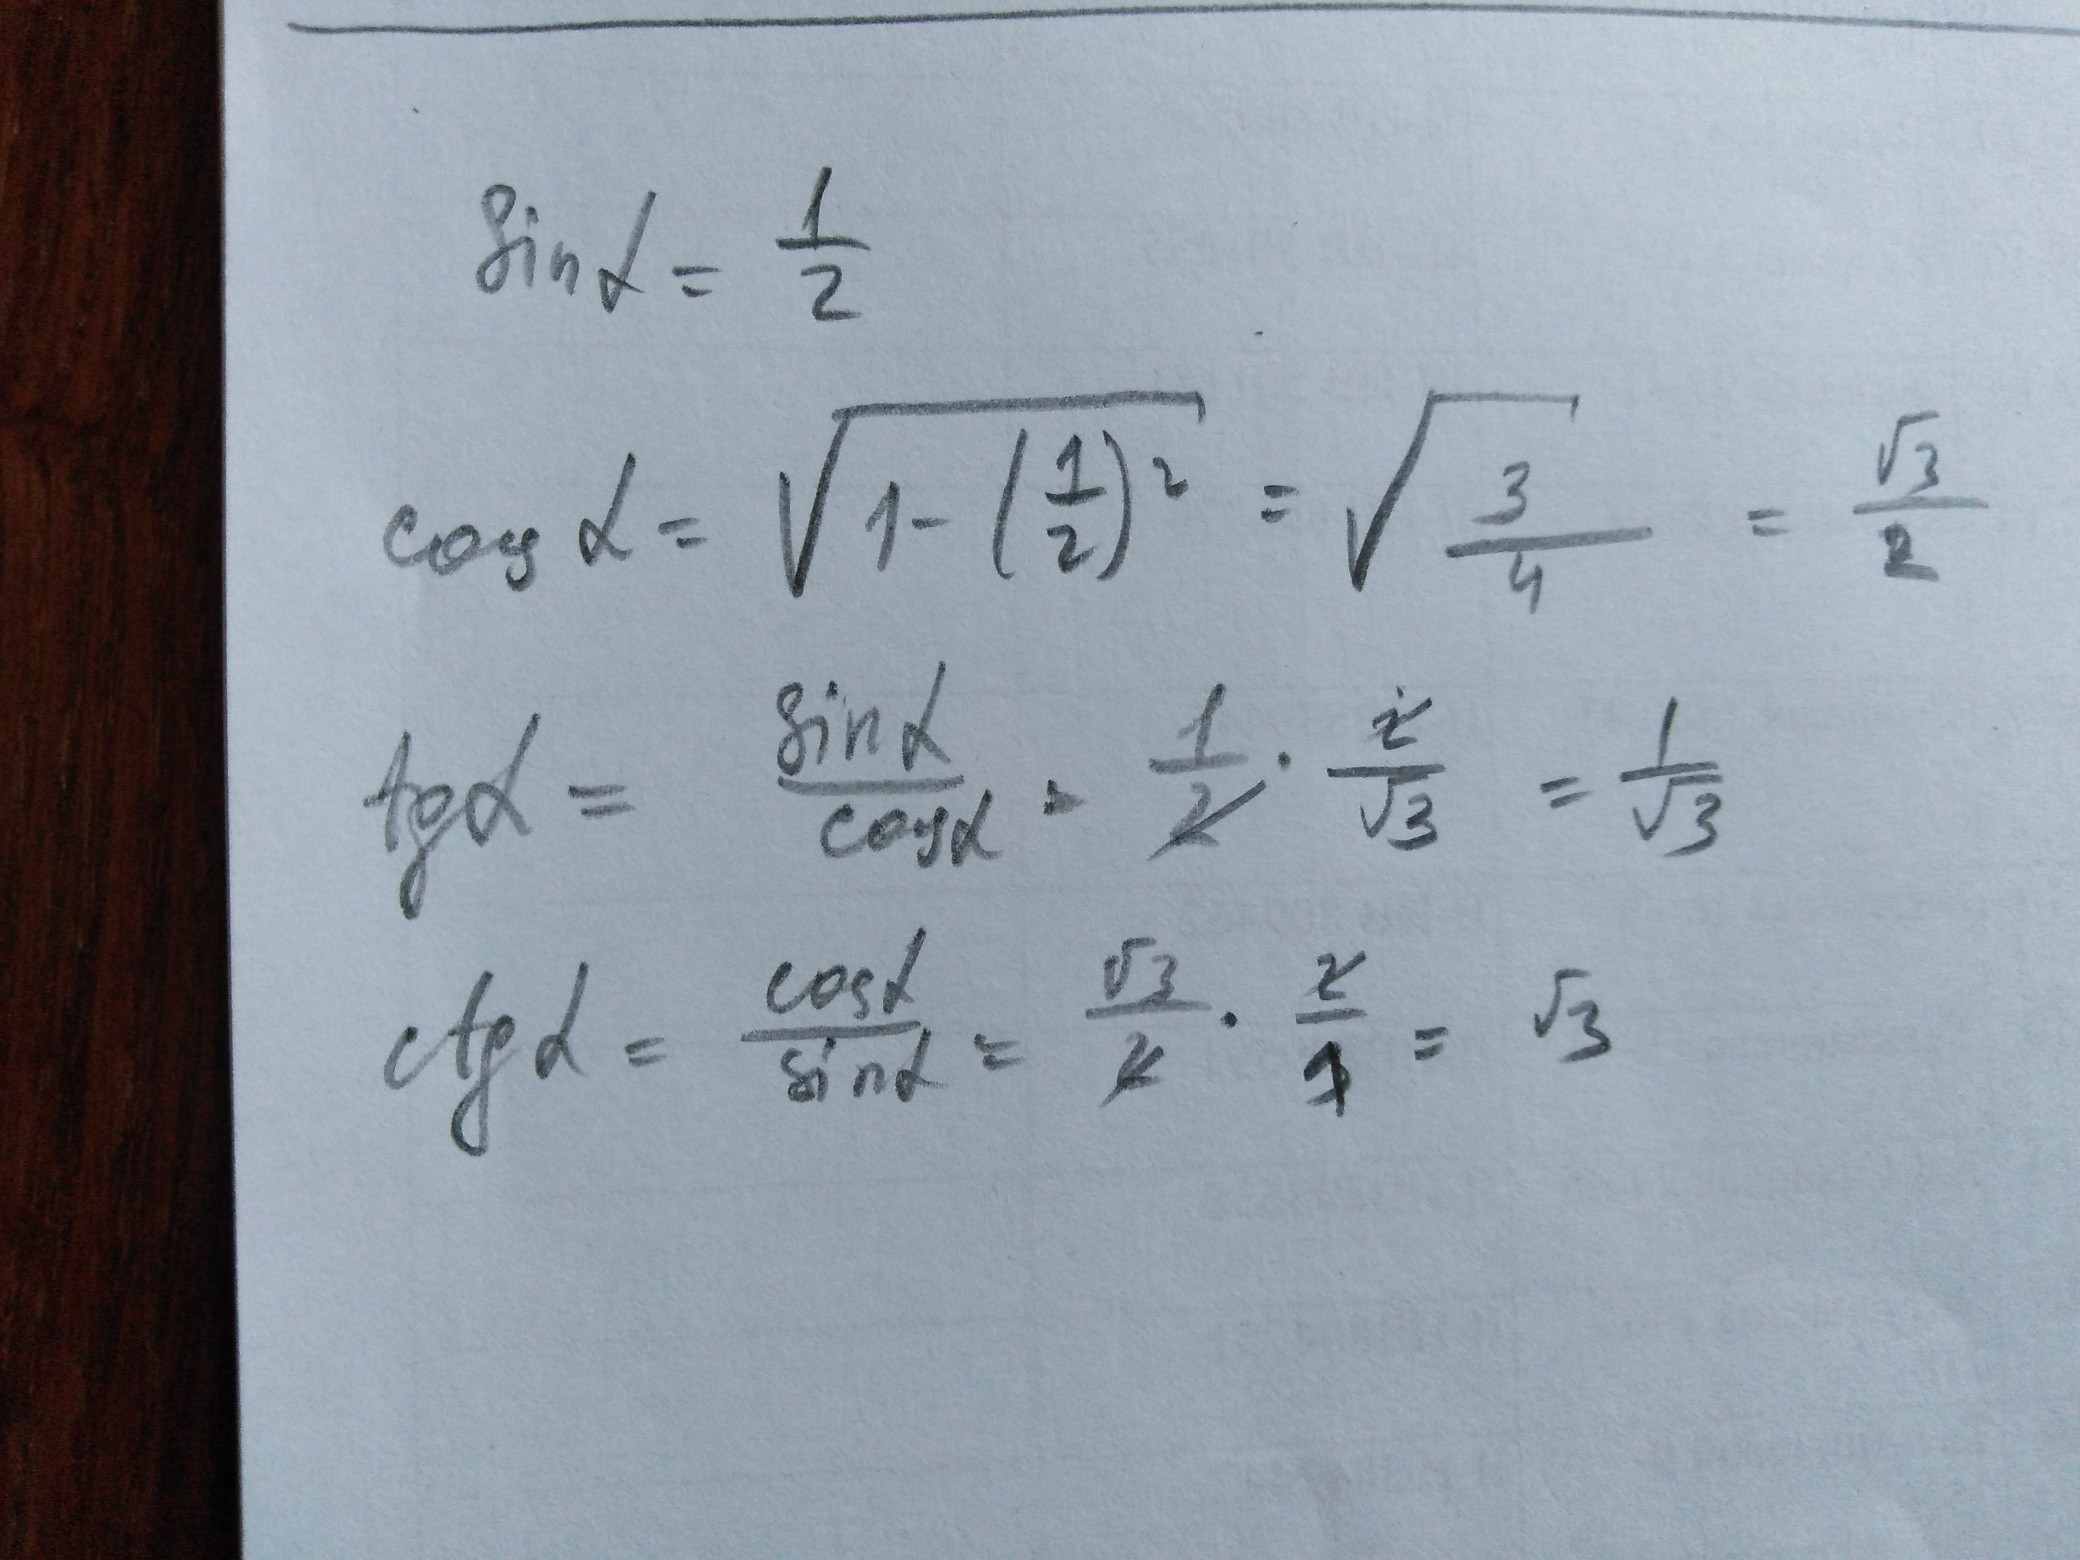 sin α = 1/2
cos α = √(1 - (1/2)²) = √(3/4) = √3/2
tg α = sin α / cos α = 1/2 · 2/√3 = 1/√3
ctg α = cos α / sin α = √3/2 · 2/1 = √3